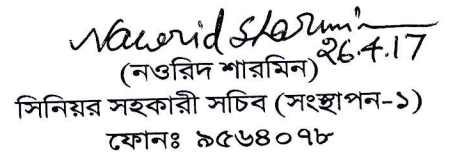 Nawrid Sharmin
26.4.17
(নওরিদ শারমিন)
সিনিয়র সহকারী সচিব (সংস্থাপন-১)
ফোনঃ ৯৫৬৪০৭৮